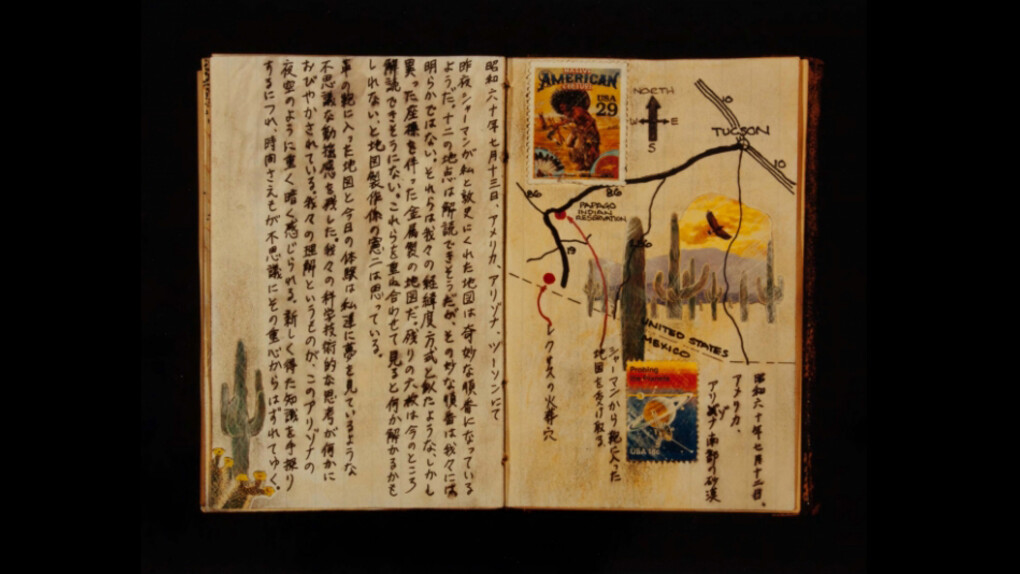 昭和六十年七月十三日、アメリカ、アリゾナ、ツーソンにて
昨夜シャーマンが私と放兄にくれた地図は奇妙な順番になっている
ようだ。十二の地点は解読できそうだが、その妙な順番は我々には
明らかではない。それらは我々の経緯度方式と似たような、しかし
異った座標を伴った金属製の地図だ。残りの六枚は今のところ
解読できそうにない。これらを重ね合わせて見ると何か解かるかも
しれない、と地図製作係の憲二は思っている。
革の鞄に入った地図と今日の体験は私達に夢を見ているような
不思議な動揺感を残した。我々の科学技術的な思考が何かに
おびやかされている。我々の理解というものが、このアリゾナの
夜空のように重く暗く感じられる。新しく得た知識を手探り
するにつれ、時間さえもが不思議にその重心からはずれてゆく。
AMERICAN
USA
29
NORTH
W E
S
10
TUCSON
10
86
86
PAPAGO
INDIAN
RESERVATION
86
19
UNITED STATES
MEXICO
レクサスの火葬穴
シャーマンから鞄に入った
地図を受け取る
Probing
the Planets
USA 18c
昭和六十年七月十二日、
アメリカ、
アリゾナ南部の砂漠